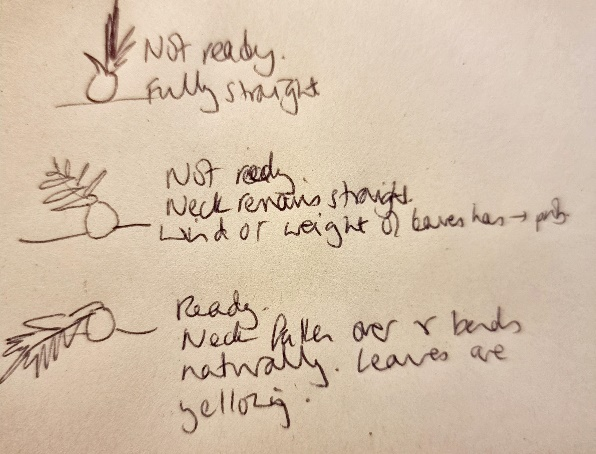 Not ready.
Fully straight
Not ready.
Neck remains straight.
Wind or weight of leaves has →
Ready.
Neck fallen over & bends
naturally. Leaves are
yellowing.